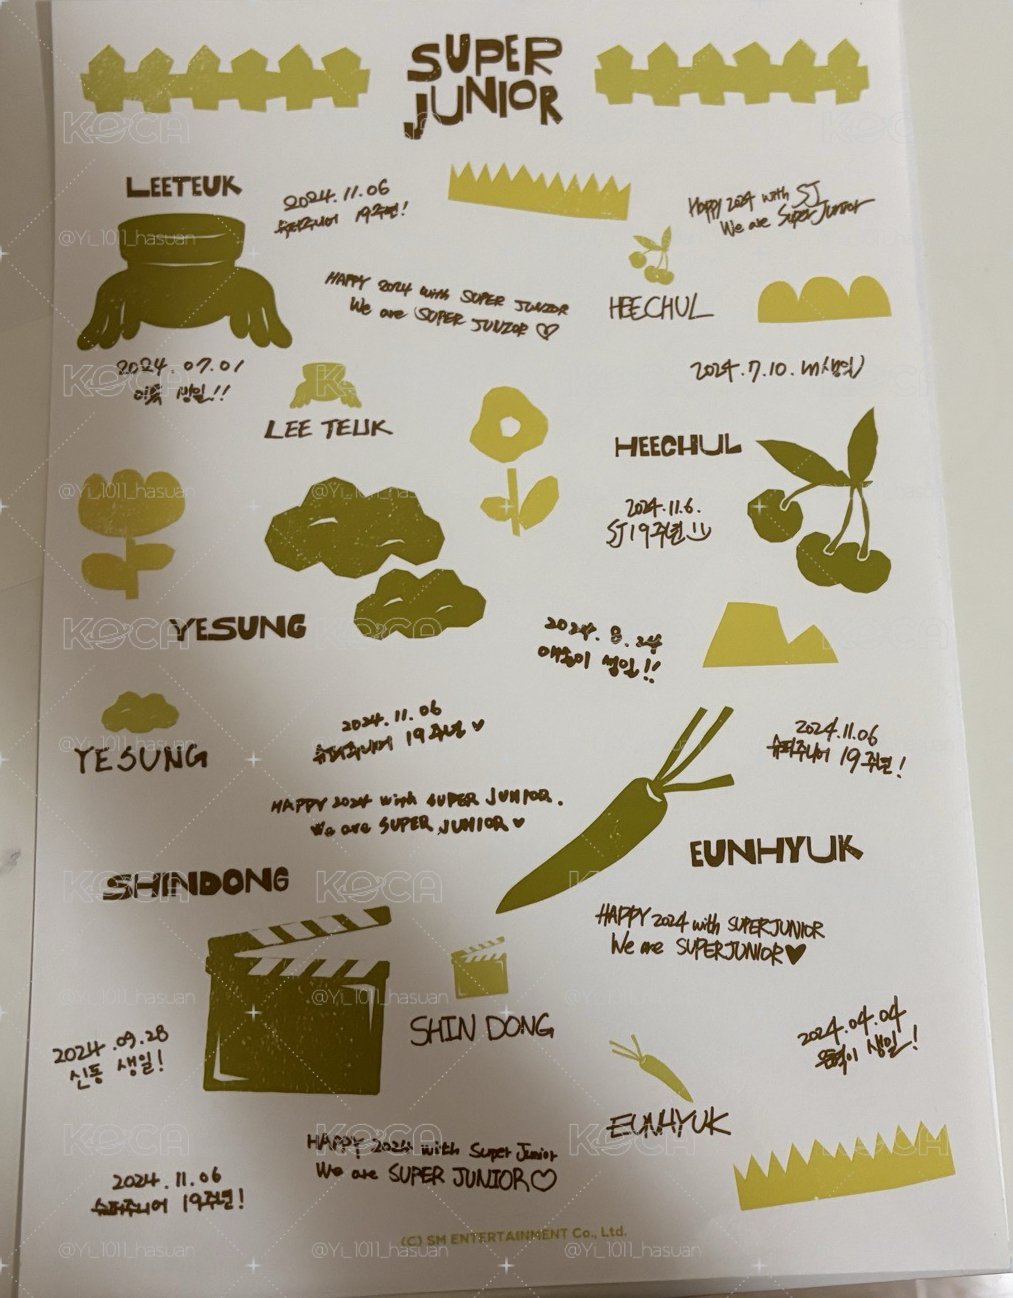 SUPER
JUNIOR
LEETEUK
2024.11.06
슈퍼주니어 19주년!
Happy 2024 with SJ
We are Super Junior
HAPPY 2024 with SUPER JUNIOR
We are SUPER JUNIOR ♡
HEECHUL
2024.07.01
이특 생일!!
2024.7.10.
LEE TEUK
HEECHUL
2024.11.6.
SJ 19주년
YESUNG
2024.8.24
예성이 생일!!
YESUNG
2024.11.06
슈퍼주니어 19주년 ♥
2024.11.06
슈퍼주니어 19주년!
HAPPY 2024 with SUPER JUNIOR.
We are SUPER JUNIOR ♥
EUNHYUK
SHINDONG
HAPPY 2024 with SUPERJUNIOR
We are SUPERJUNIOR♥
SHIN DONG
2024.09.28
신동 생일!
2024.04.04
은혁이 생일!
EUNHYUK
HAPPY 2024 with Super Junior
We are SUPER JUNIOR♡
2024.11.06
슈퍼주니어 19주년!
(C) SM ENTERTAINMENT Co., Ltd.
KOCA
@Yi_1011_hasuan